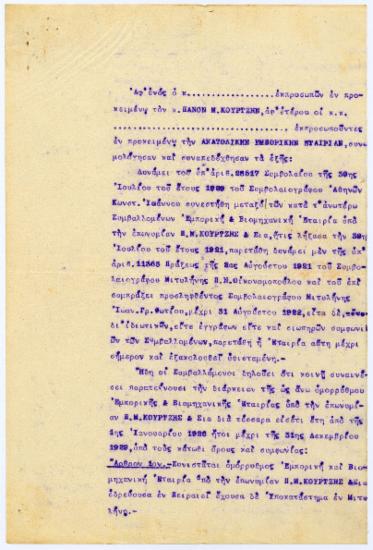 Ἀφ'ἑνός ὁ κ...................ἐκπροσωπῶν ἐν προ-
κειμένῳ τόν κ.ΠΑΝΟΝ Μ.ΚΟΥΡΤΖΗΝ,ἀφ'ἑτέρου οἱ κ.κ.
..............................., ἐκπροσωποῦντες
ἐν προκειμένῳ τήν ΑΝΑΤΟΛΙΚΗΝ ΕΜΠΟΡΙΚΗΝ ΕΤΑΙΡΙΑΝ,συνω-
μολόγησαν καί συναπεδέχθησαν τά ἑξῆς:
Δυνάμει τοῦ ὑπ'ἀριθ.28517 Συμβολαίου τῆς 30ης
Ἰουλίου τοῦ ἔτους 1920 τοῦ Συμβολαιογράφου Ἀθηνῶν
Κωνστ.Ἰωάννου συνεστήθη μεταξύ τῶν κατά τ'ἀνωτέρω
Συμβαλλομένων Ἐμπορική & Βιομηχανική Ἑταιρία ὑπό
τήν ἐπωνυμίαν Π.Μ.ΚΟΥΡΤΖΗΣ & Σια,ἥτις λήξασα τήν 30ην
Ἰουλίου τοῦ ἔτους 1921,παρετάθη δυνάμει μέν τῆς ὑπ'
ἀριθ.11363 Πράξεως τῆς 2ας Αὐγούστου 1921 τοῦ Συμβο-
λαιογράφου Μιτυλήνης Π.Χ.Οἰκονομοπούλου καί τοῦ ἐπί
συμπράξει προσληφθέντος Συμβολαιογράφου Μιτυλήνης
Ἰωαν.Γρ.Φωτίου,μέχρι 31 Αὐγούστου 1922,εἶτα δέ,
δι'ἰδιωτικῶν,εἴτε ἐγγράφων εἴτε καί σιωπηρῶν συμφωνι-
ῶν τῶν Συμβαλλομένων,παρετάθη ἡ Ἑταιρία αὕτη μέχρι
σήμερον καί ἐξακολουθεῖ ὑφισταμένη.-
Ἤδη οἱ Συμβαλλόμενοι δηλοῦσι ὅτι κοινῇ συναινέ-
σει παρατείνουσι τήν διάρκειαν τῆς ὡς ἄνω ὁμορρύθμου
Ἐμπορικῆς & Βιομηχανικῆς Ἑταιρίας ὑπό τήν ἐπωνυμί-
αν Π.Μ.ΚΟΥΡΤΖΗΣ & Σια διά τέσσαρα εἰσέτι ἔτη ἀπό τῆς
1ης Ἰανουαρίου 1926 ἤτοι μέχρι τῆς 31ης Δεκεμβρίου
1929,ὑπό τούς κάτωθι ὅρους καί συμφωνίας:
Ἄρθρον 1ον.-Συνιστᾶται ὁμόρρυθμος Ἐμπορική καί Βιο-
μηχανική Ἑταιρία ὑπό τήν ἐπωνυμίαν Π.Μ.ΚΟΥΡΤΖΗΣ &Σια
ἑδρεύουσα ἐν Πειραιεῖ ἔχουσα δέ Ὑποκατάστημα ἐν Μιτυ-
λήνῃ.-